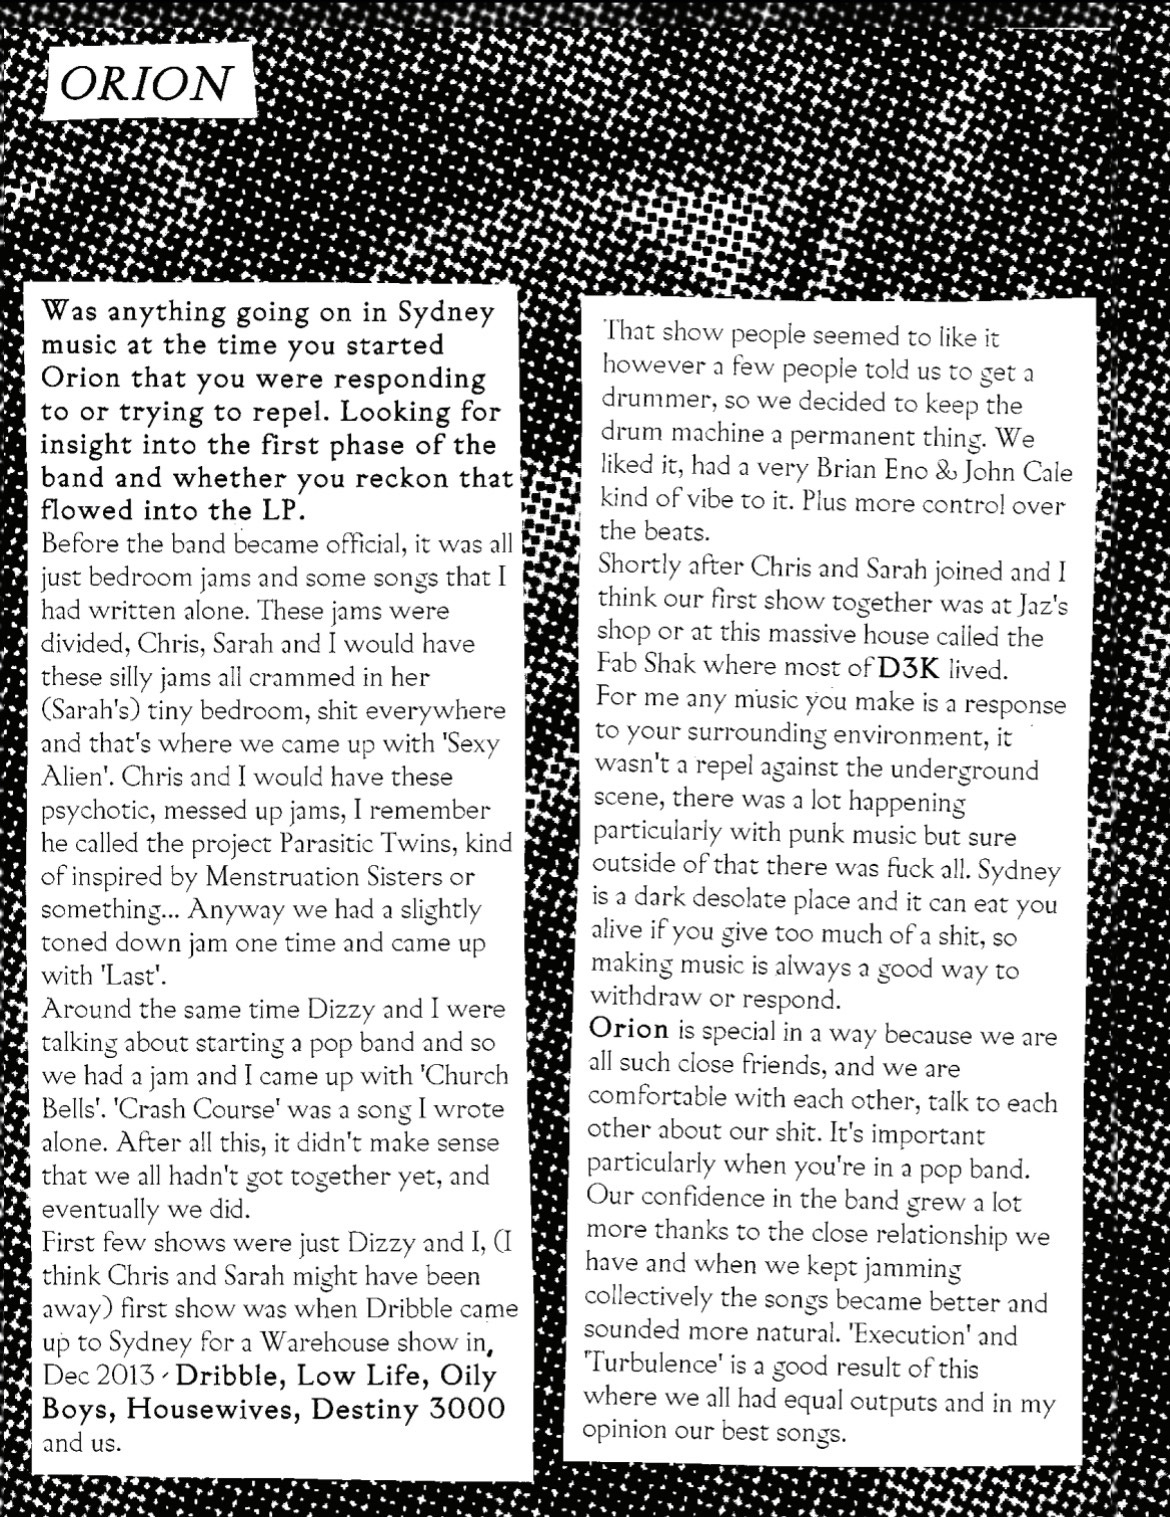 ORION
Was anything going on in Sydney
music at the time you started
Orion that you were responding
to or trying to repel. Looking for
insight into the first phase of the
band and whether you reckon that
flowed into the LP.
Before the band became official, it was all
just bedroom jams and some songs that I
had written alone. These jams were
divided, Chris, Sarah and I would have
these silly jams all crammed in her
(Sarah's) tiny bedroom, shit everywhere
and that's where we came up with 'Sexy
Alien'. Chris and I would have these
psychotic, messed up jams, I remember
he called the project Parasitic Twins, kind
of inspired by Menstruation Sisters or
something... Anyway we had a slightly
toned down jam one time and came up
with 'Last'.
Around the same time Dizzy and I were
talking about starting a pop band and so
we had a jam and I came up with 'Church
Bells'. 'Crash Course' was a song I wrote
alone. After all this, it didn't make sense
that we all hadn't got together yet, and
eventually we did.
First few shows were just Dizzy and I, (I
think Chris and Sarah might have been
away) first show was when Dribble came
up to Sydney for a Warehouse show in,
Dec 2013 - Dribble, Low Life, Oily
Boys, Housewives, Destiny 3000
and us.
That show people seemed to like it
however a few people told us to get a
drummer, so we decided to keep the
drum machine a permanent thing. We
liked it, had a very Brian Eno & John Cale
kind of vibe to it. Plus more control over
the beats.
Shortly after Chris and Sarah joined and I
think our first show together was at Jaz's
shop or at this massive house called the
Fab Shak where most of D3K lived.
For me any music you make is a response
to your surrounding environment, it
wasn't a repel against the underground
scene, there was a lot happening
particularly with punk music but sure
outside of that there was fuck all. Sydney
is a dark desolate place and it can eat you
alive if you give too much of a shit, so
making music is always a good way to
withdraw or respond.
Orion is special in a way because we are
all such close friends, and we are
comfortable with each other, talk to each
other about our shit. It's important
particularly when you're in a pop band.
Our confidence in the band grew a lot
more thanks to the close relationship we
have and when we kept jamming
collectively the songs became better and
sounded more natural. 'Execution' and
'Turbulence' is a good result of this
where we all had equal outputs and in my
opinion our best songs.